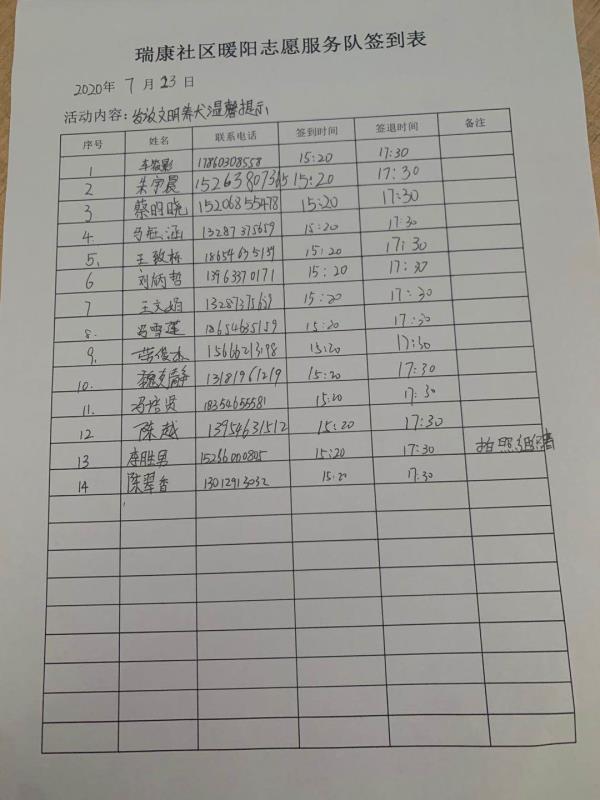 瑞康社区暖阳志愿服务队签到表
2020年 7 月 23 日
活动内容：发放文明养犬温馨提示
序号 姓名 联系电话 签到时间 签退时间 备注
1 17860308558 15:20 17:30
2 朱宇晨 15263807365 15:20 17:30
3 蔡明晓 15206855478 15:20 17:30
4. 马钰涵 13287375659 15:20 17:30
5. 王致栋 18654635159 15:20 17:30
6 刘炳哲 13963370171 15:20 17:30
7 王文娟 13287375659 15:20 17:30
8. 冯雪莲 18654635159 15:20 17:30
9. 劳俊杰 15666213198 15:20 17:30
10. 魏克静 13181961219 15:20 17:30
11. 冯培贤 18354655581 15:20 17:30
12 陈越 13954631512 15:20 17:30
13 李胜男 15266000805 15:20 17:30 拍照组织者
14 陈翠香 13012913032 15:20 17:30